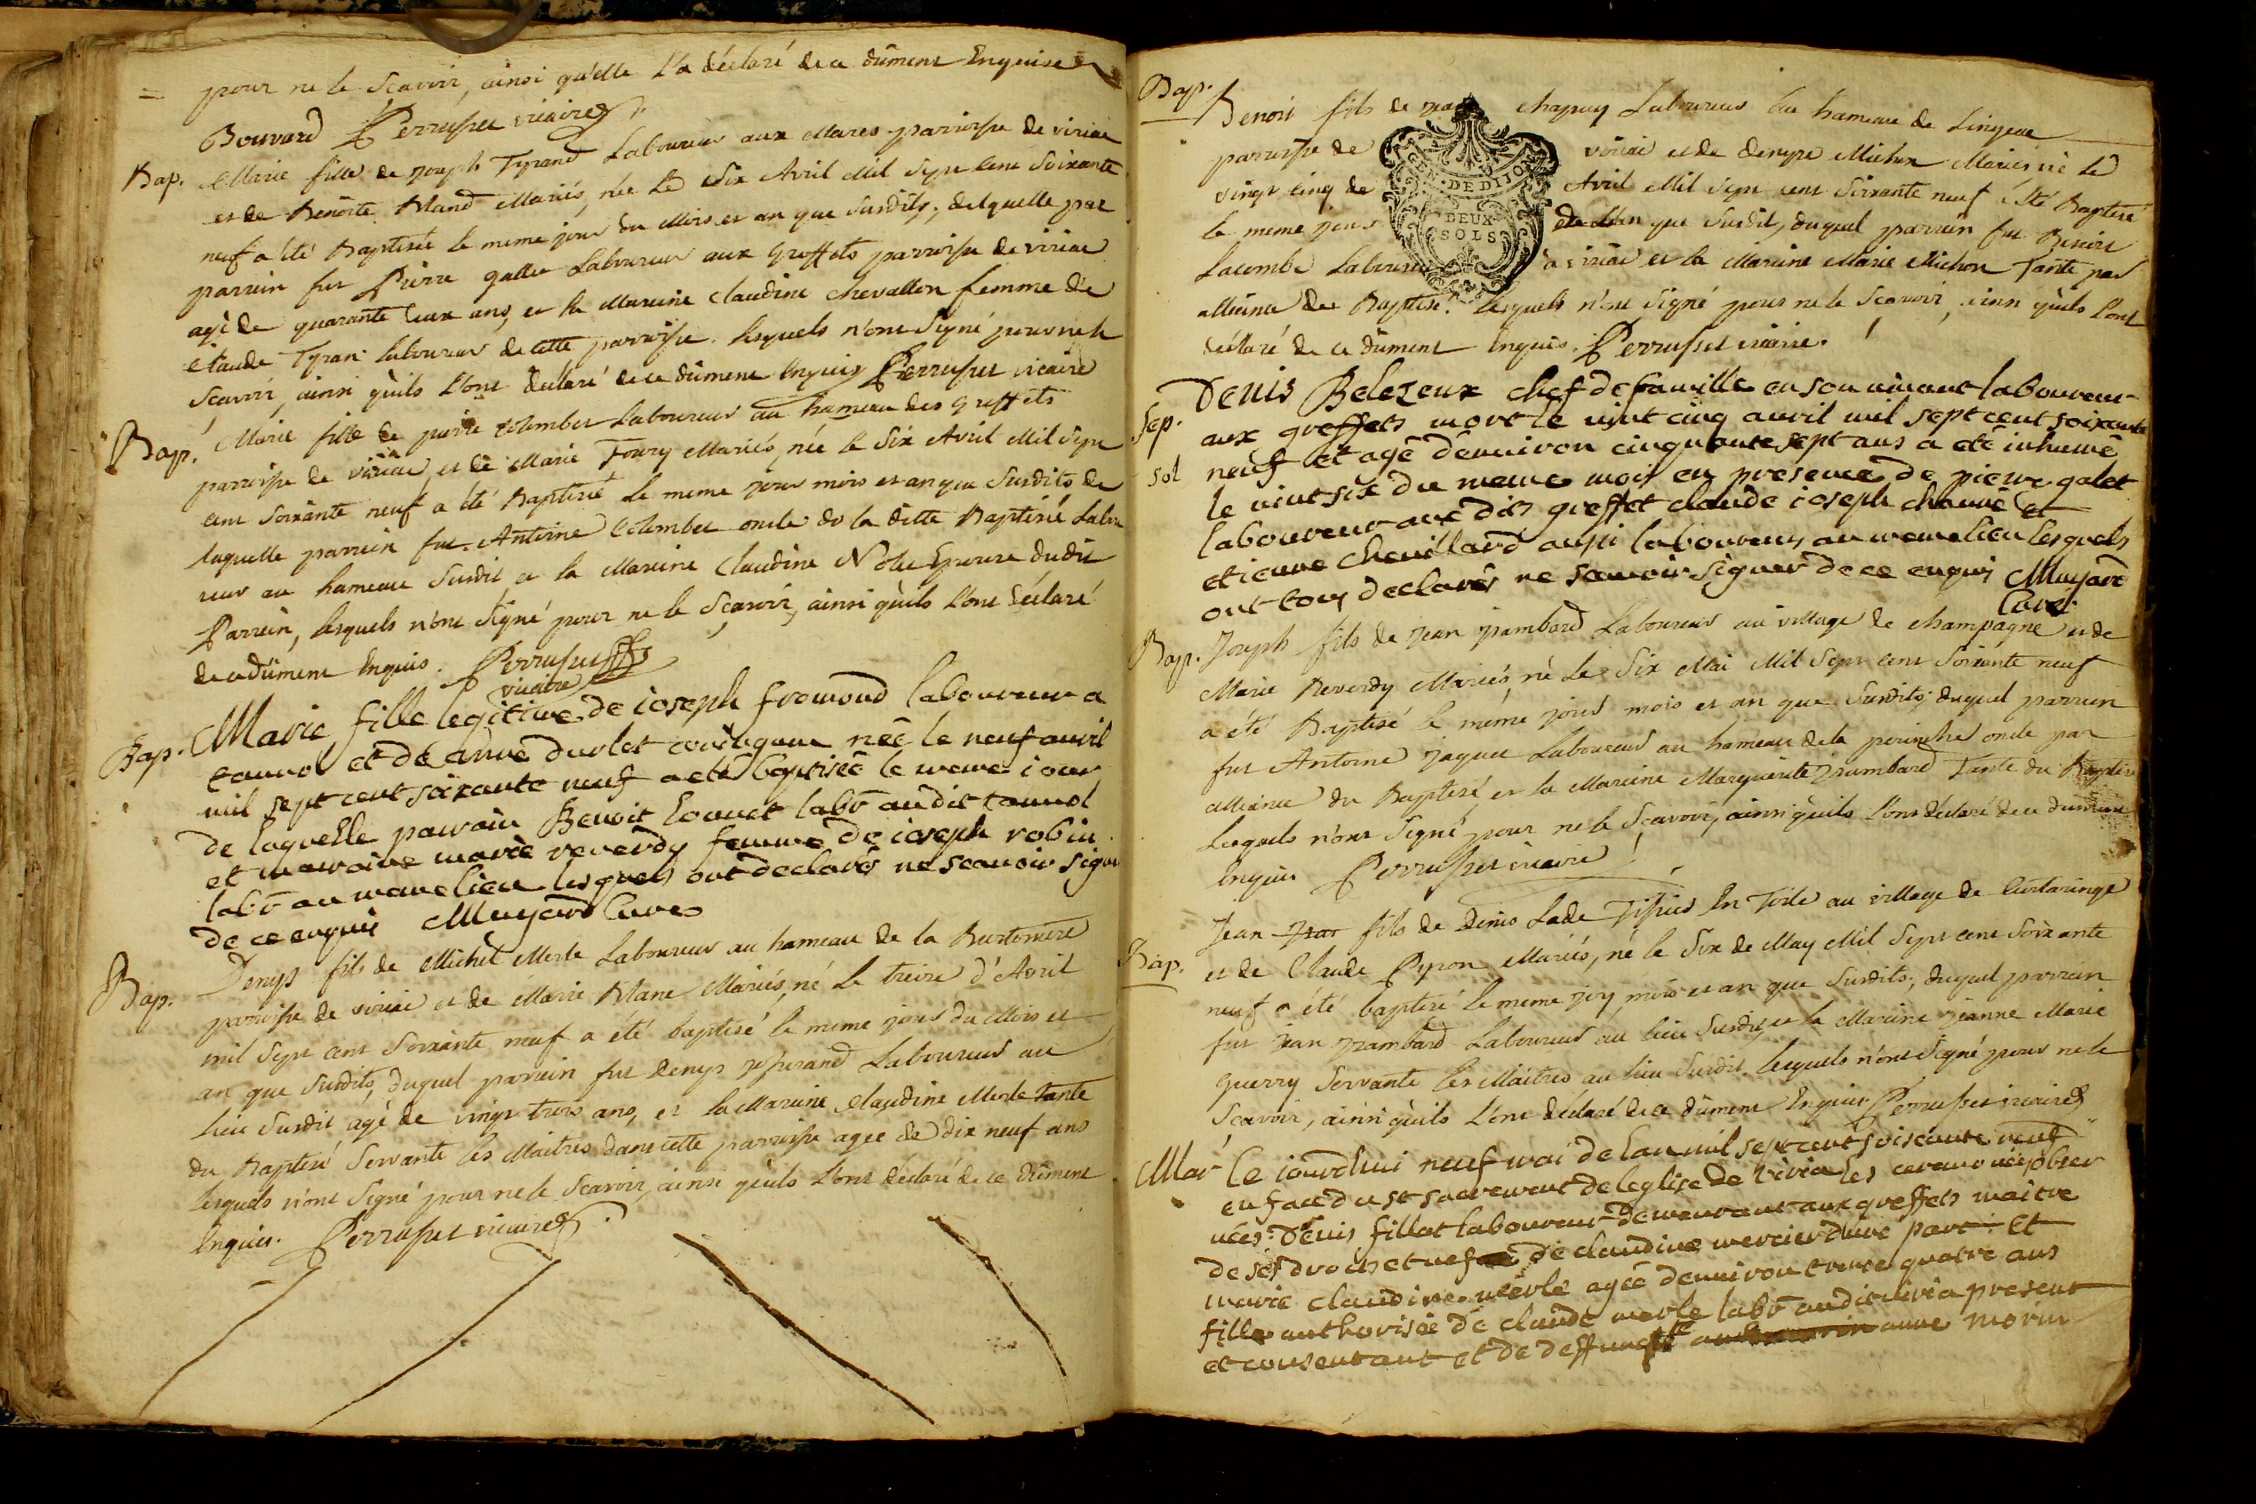 pour ne le Scavoir, ainsi qu'elle L'a déclaré de ce dûment Enquise
Bouvard Perrusset vicaire
Bap. Marie fille de Joseph Tyrand Laboureur aux Mares parroisse de viriac
et de Benoîte Bland Mariés, née Le Six Avril Mil Sept Cent Soixante
neuf a été Baptisée le meme jour du Mois et an que Susdits, de laquelle par
parrein fut Pierre gallet Laboureur aux greffets parroisse de viriac
agé de quarante deux ans, et la Mareine Claudine Chevallon femme de
Claude Tyran laboureur de cette parroisse. lesquels n'ont Signé pour ne le
Scavoir, ainsi qu'ils L'ont declaré de ce dûment Enquis Perrusset vicaire
Bap. Marie fille de pierre Colombet Laboureur au hameau des greffets
parroisse de viriac et de Marie Foury Mariés, née le Six Avril Mil Sept
cent Soixante neuf a été Baptisée le meme jour mois et an que Susdits de
laquelle parrein fut Antoine Colombet oncle de la ditte Baptisée Labou
reur au hameau Susdit, et la Mareine Claudine Epouse dudit
Parrein, lesquels n'ont Signé pour ne le Scavoir, ainsi qu'ils L'ont déclaré
de ce dûment Enquis. Perrusset
vicaire
Bap. Marie fille legitime de ioseph fromond laboureur a
tannol et de anne durlet née le neuf avril
mil sept cent soixante neuf a eté baptisée le meme iour
de laquelle parrain Benoit laboʳ audit tannol
et marraine marie reverdy femme de ioseph robin
laboʳ au meme lieu lesquels ont declarés ne scavoir signer
de ce enquis Muyard Curé
Bap. Denys fils de Michel Merle Laboureur au hameau de la
parroisse de viriac et de Marie Blanc Mariés, né Le treize d'Avril
mil Sept cent Soixante neuf a été baptisé le meme jour du Mois et
an que Susdits, duquel parrein fut denys Laboureur au
lieu Susdit agé de vingt trois ans, et la Mareine Claudine Merle Tante
du Baptisé Servante les Maitres dans cette parroisse agee de dix neuf ans
lesquels n'ont Signé pour ne le Scavoir, ainsi qu'ils L'ont déclaré de ce dûment
Enquis. Perrusset vicaire
Bap. Benoit fils de chapuy Laboureur au hameau de Lingeat
parroisse de viriac et de denyse Michon Mariés né Le
vingt cinq de Avril Mil Sept cent Soixante neuf été Baptisé
le meme jour de L'an que Susdit, duquel parrein fut Benoit
Lacombe Laboureur a viriac et la Mareine Marie Michon Tante par
alliance du Baptisé. lesquels n'ont Signé pour ne le Scavoir, ainsi qu'ils L'ont
déclaré de ce dûment Enquis. Perrusset vicaire.
GEN. DE DIJON
DEUX
SOLS
Denis Belezeux chef de famille en son vivant laboureur
Sep. aux greffets mort le vint cinq avril mil sept cent soixante
sol neuf et agé d'environ cinquante sept ans a eté inhumé
le vint six du meme mois en presence de pierre galet
laboureur aux dits greffet claude ioseph chauvé et
etienne Chevillard aussi laboureurs au meme lieu lesquels
ont tous declarés ne scavoir signer de ce enquis Muyard
Curé
Bap. Joseph fils de Jean Laboureur au village de champagne et de
Marie Reverdy Mariés, né Le Six Mai Mil Sept cent Soixante neuf
a été Baptisé le même jour mois et an que Susdits, duquel parrein
fut Antoine Jaquet Laboureur au hameau de la oncle par
alliance du Baptisé, et la Mareine Marguerite Tante du Baptisé
Lesquels n'ont Signé pour ne le Scavoir, ainsi qu'ils L'ont déclaré de ce dûment
Enquis Perrusset vicaire
Jean fils de Denis Lade Tissier En Toile au village de
Bap. et de Claude Pyron Mariés, né le Six de May Mil Sept cent Soixante
neuf a été baptisé le meme jour, mois et an que Susdits; duquel parrein
fut Jean Laboureur au lieu Susdit, et la Mareine jeanne Marie
guerry Servante les Maitres au lieu Susdit. lesquels n'ont Signé pour ne le
Scavoir, ainsi qu'ils L'ont déclaré de ce dûment Enquis Perrusset vicaire
Mar Ce iourdhui neuf mai de lan mil sept cent soixante neuf
en face du st sacrement de leglise de viria les ceremonies obser
vées Denis fillot laboureur demeurant aux greffets maitre
de ses droits et de claudine mercier dune part et
marie claudine merle agée d'environ trente quatre ans
fille authorisée de claude merle laboʳ audit viria present
et consentant et de deffuncte anne morin